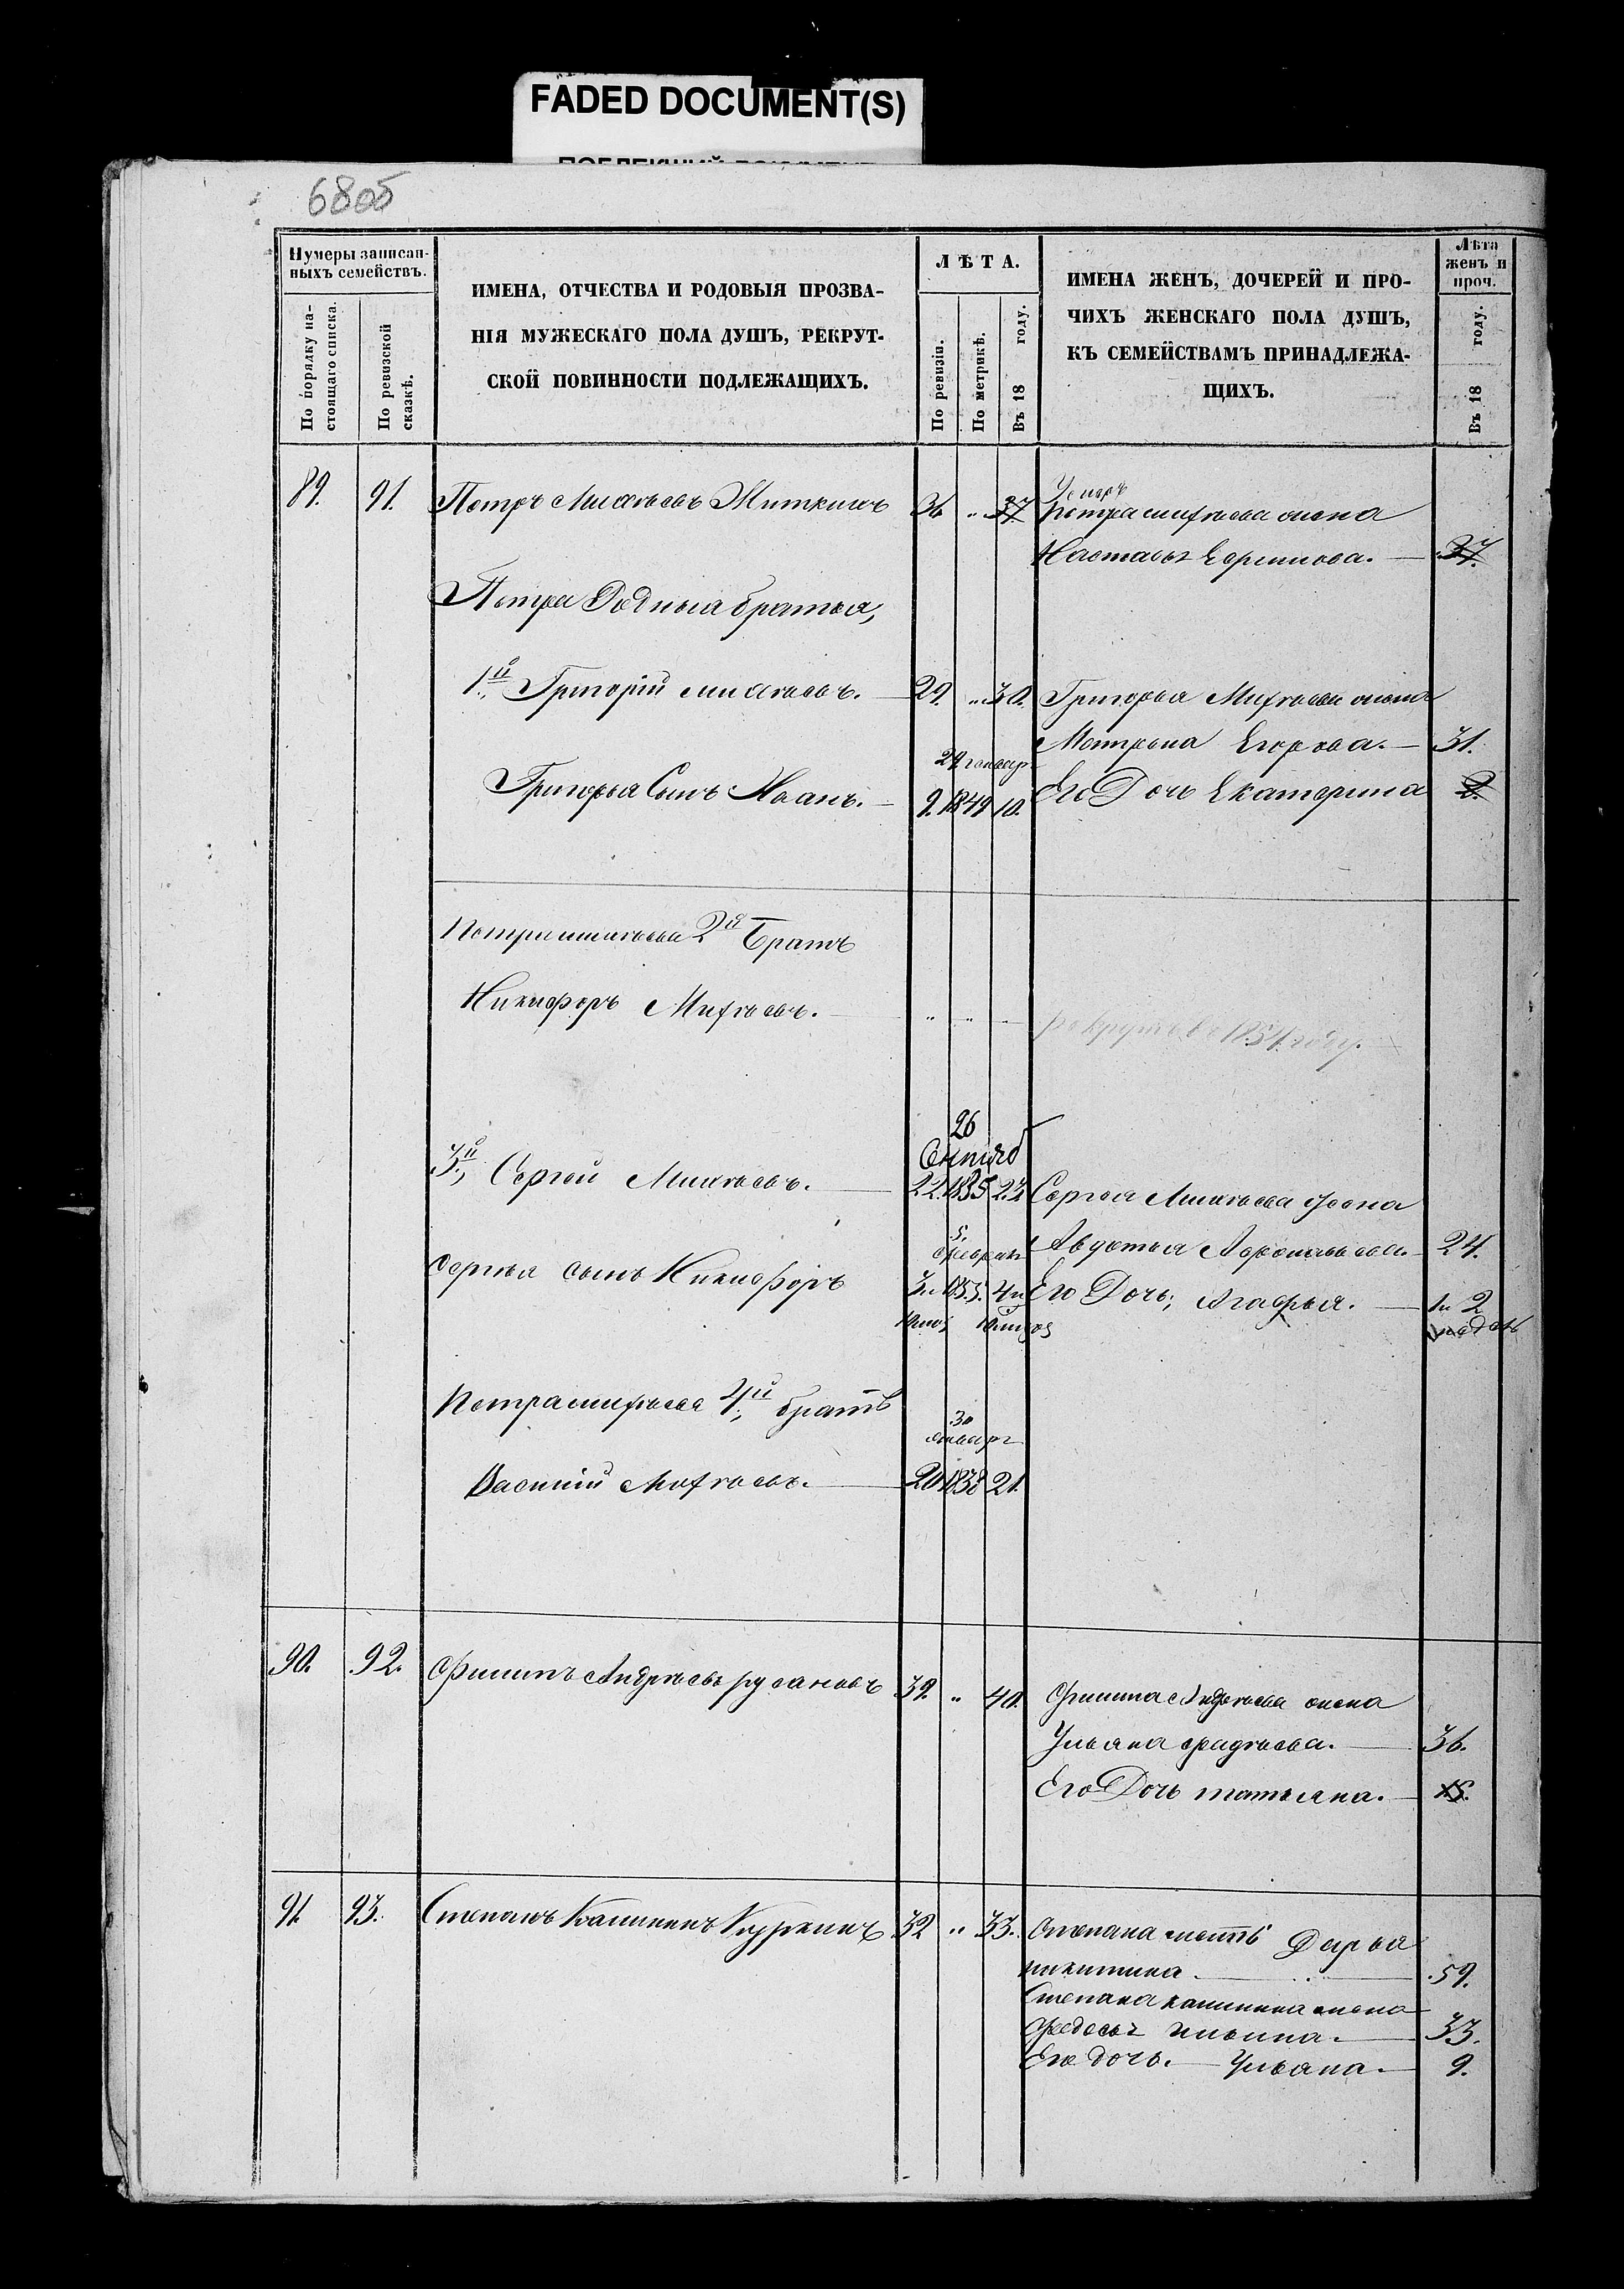 FADED DOCUMENT(S)
68об
Нумеры записан-
ныхъ семействъ.
По порядку на-
стоящаго списка.
По ревизской
сказкѣ.
ИМЕНА, ОТЧЕСТВА И РОДОВЫЯ ПРОЗВА-
НІЯ МУЖЕСКАГО ПОЛА ДУШЪ, РЕКРУТ-
СКОЙ ПОВИННОСТИ ПОДЛЕЖАЩИХЪ.
ЛѢТА.
По ревизіи.
По метрикѣ.
Въ 18 году.
ИМЕНА ЖЕНЪ, ДОЧЕРЕЙ И ПРО-
ЧИХЪ ЖЕНСКАГО ПОЛА ДУШЪ,
КЪ СЕМЕЙСТВАМЪ ПРИНАДЛЕЖА-
ЩИХЪ.
Лѣта
женъ и
проч.
Въ 18 году.
89. 91. Петръ Михѣевъ Миткинъ 36 „ 37 Петра Михѣева жена
Настасья Ефимова. 37.
Петра Родныя братья,
1й Григорій Михѣевъ. 29. „ 30. Григорья Михѣева жена
Матрена Егорова. 31.
29 январ
Григорья Сынъ Иванъ. 9. 1849 10. Его Дочь Екатерина
Петра Михѣева 2й Братъ
Никифоръ Михѣевъ. „ „
рекрутъ въ 1854 году.
26
Сентяб
3й, Сергѣй Михѣевъ. 22. 1835 23 Сергѣя Михѣева Жена
5. феврал Авдотья 24.
Сергѣя сынъ Никифоръ 3 и 1855. 4 и Его Дочь, Агафья. 1 и 2
Петра Михѣева 4й, братъ
30
январг
Василій Михѣевъ. 20 1838 21.
90. 92. Филипъ Андрѣевъ Русановъ 39. „ 40. Филипа Андрѣева жена
Ульяна Фадѣева. 36.
Его Дочь татьяна. 15.
91. 93. Степанъ Калининъ Куркинъ 32 „ 33. Степана мать Дарья
никитина. 59.
Степана калинина жена
Федосья ильина. 33.
Его дочь. Ульяна. 9.